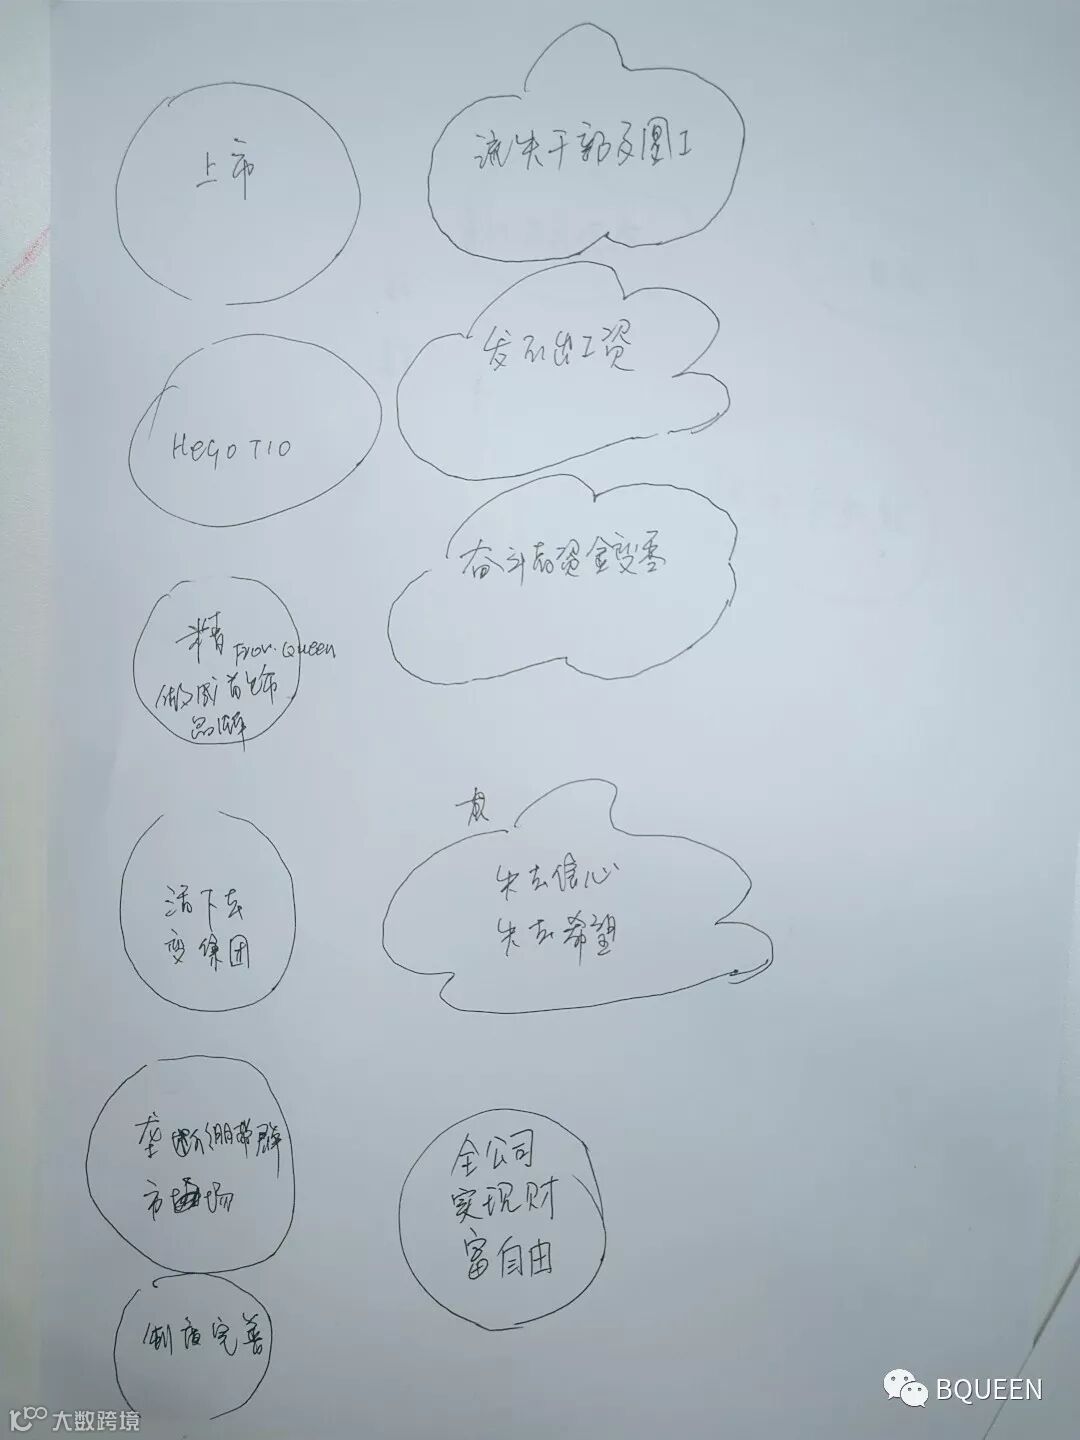 上市
流失干部及员工
Hego T10
发不出工资
奋斗者资金变零
精 From.Queen
做成首饰
品牌
活下去
变集团
失去信心
失去希望
垄断绷带群
市场
全公司
实现财
富自由
制度完善
BQUEEN
大数跨境